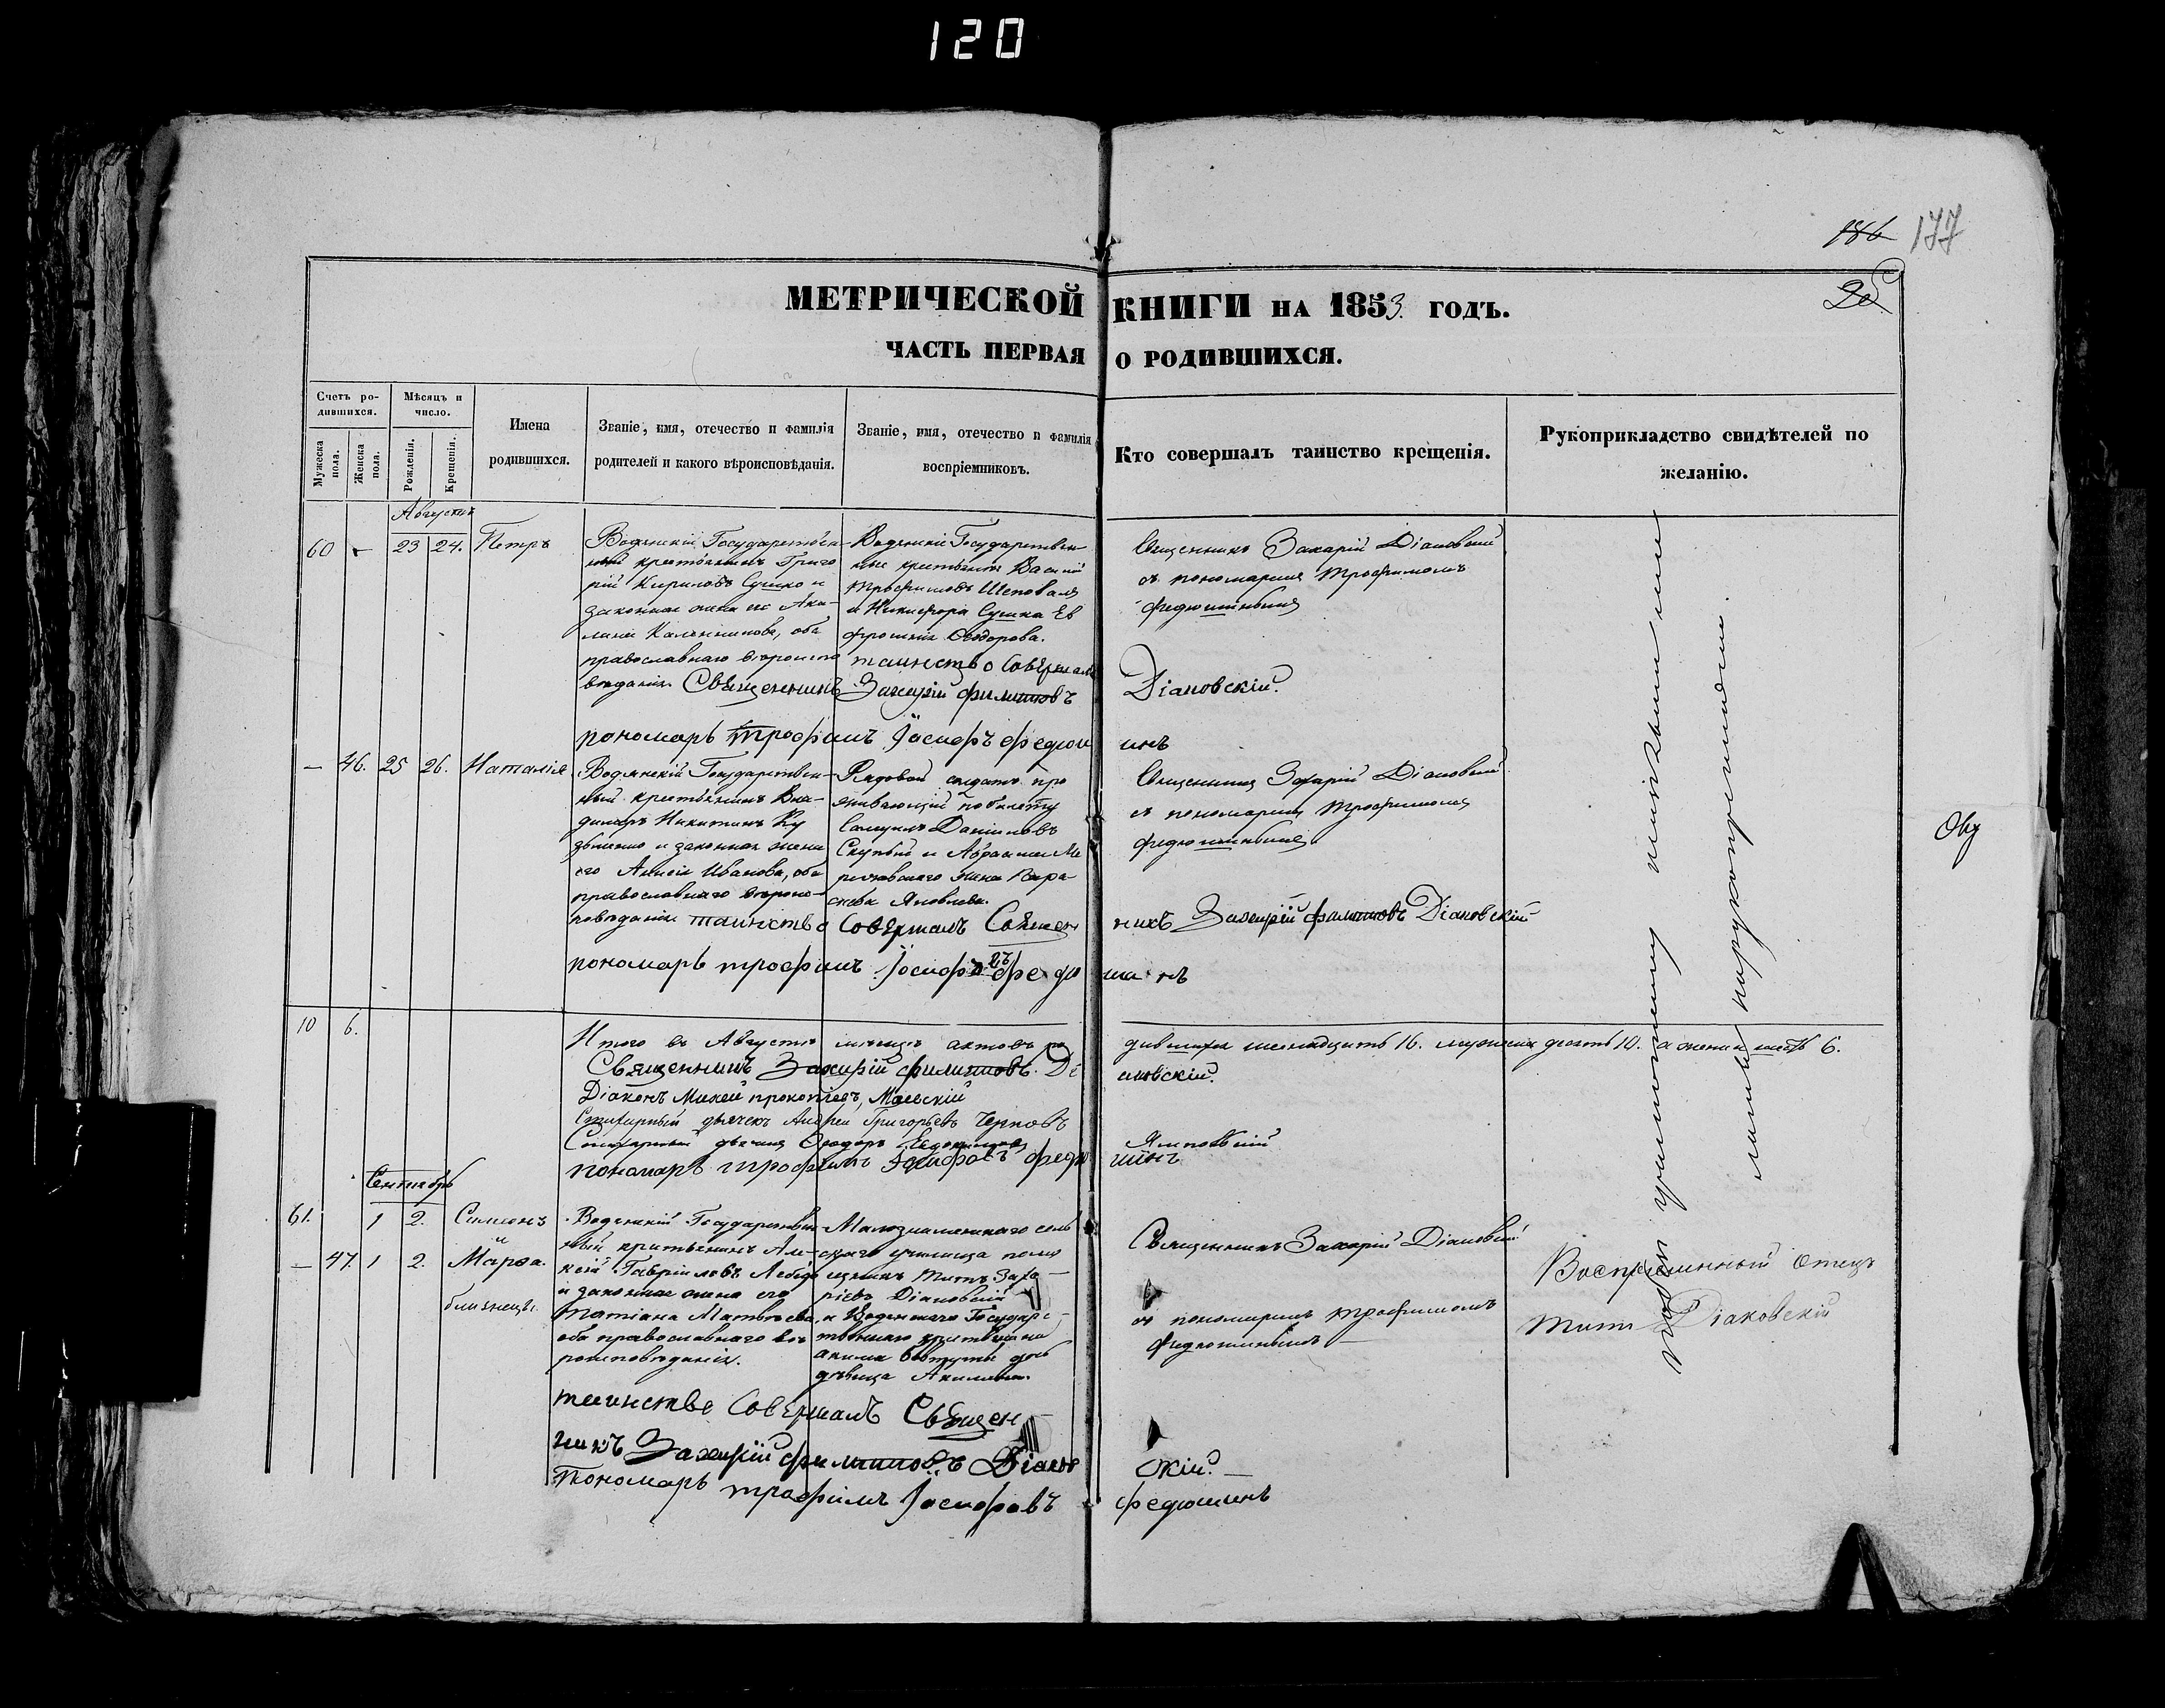 120
186 177
20
МЕТРИЧЕСКОЙ КНИГИ НА 1853. ГОДЪ.
ЧАСТЬ ПЕРВАЯ О РОДИВШИХСЯ.
Счетъ родившихся.
Мужеска пола.
Женска пола.
Мѣсяцъ и число.
Рожденія.
Крещенія.
Имена родившихся.
Званіе, имя, отечество и фамилія
родителей и какого вѣроисповѣданія.
Званіе, имя, отечество и фамилія
воспріемниковъ.
Кто совершалъ таинство крещенія.
Рукоприкладство свидѣтелей по
желанію.
Августъ
60 – 23 24. Петръ
Водянскій Государствен
ный крестьянинъ Григо
рій Кириловъ Сушко и
законная жена его Аку-
лина Калинникова, оба
православнаго вѣроиспо
вѣданія.
Водянскіе Государствен
ные крестьяне Василій
Трофимовъ Шеповалъ
и Никифора Сушка Ев
фросинія Ѳеодорова.
Священникъ Захарій Діаковскій
съ пономаремъ Трофимомъ
Федюшинымъ
таинство Совершалъ
Священникъ Захарій филиповъ Діаковскій.
пономарь Трофимъ Іосифъ федюшинъ
– 46. 25 26. Наталія
Водянскій Государствен-
ный крестьянинъ Вла-
димиръ Никитинъ
и законная жена
его Анисія Иванова, оба
православнаго вѣроис-
повѣданія
Рядовой солдатъ про
живающій по билету
Самуилъ Даніиловъ
Скупый и Авраама
жена Пара-
скева Яковлева.
Священникъ Захарій Діаковскій
съ пономаремъ Трофимомъ
Федюшинымъ
таинство Совершалъ Священникъ Захарій филиповъ Діаковскій
пономарь трофимъ Іосифовъ федюшинъ
10 6.
Итого въ Августѣ мѣсяцѣ актовъ родившихся шестнадцать 16. мужеска десять 10. а женска шесть 6.
Священникъ Захарій филиповъ Діаковскій.
Діаконъ Михей прокопіевъ, Маевскій
Стихарный дьячекъ Андрей Григорьевъ Черновъ
Стихарный дьячекъ Ѳеодоръ Евдокимовъ Ямповскій
пономарь трофимъ Іосифовъ федюшинъ
Сентябрь
61. 1 2. Симеонъ
и
– 47. 1 2. Марѳа.
близнецы.
Водянскій Государствен
ный крестьянинъ Але-
ксѣй Гавріиловъ Лебедь
и законная жена его
Татіана Матвѣева,
оба православнаго вѣ
роисповѣданія.
Малознаменскаго сель
скаго училища помо
щникъ Титъ Заха-
ріевъ Діаковскій
и Водянскаго Государс-
твеннаго крестьянина
Акима дочь
дѣвица Акилина.
Священникъ Захарій Діаковскій
съ пономаремъ Трофимомъ
Федюшинымъ –
Воспріемный Отецъ
Титъ Діаковскій
таинство Совершалъ Священ-
никъ Захарій филиповъ Діаковскій. –
Пономарь трофимъ Іосифовъ федюшинъ